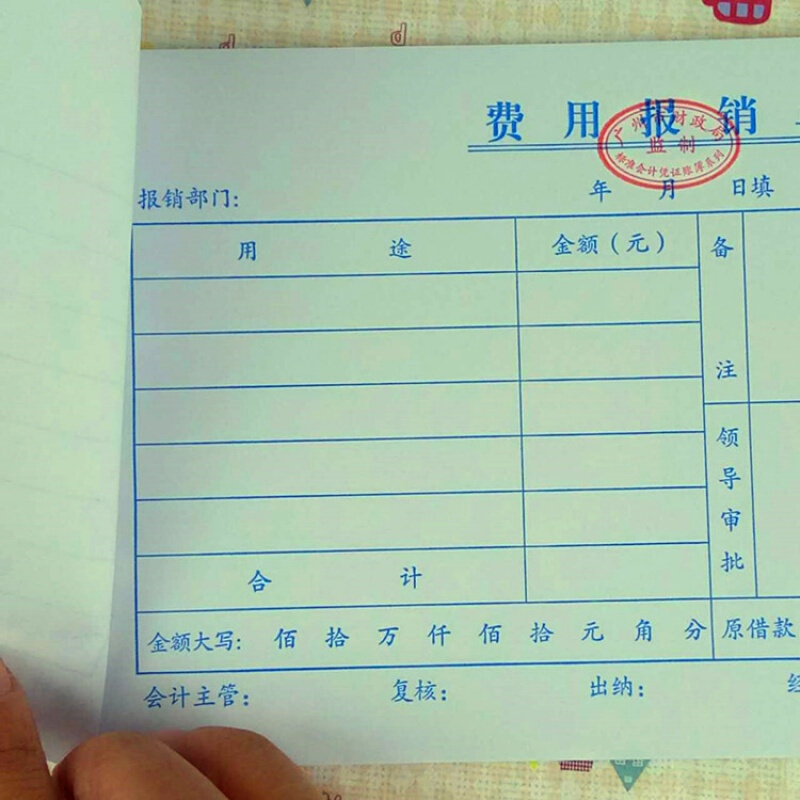 费 用 报 销
广州市财政局
监制
标准会计凭证账簿系列
报销部门: 年 月 日填
用 途 金额(元) 备
注
领
导
审
批
合 计
金额大写: 佰 拾 万 仟 佰 拾 元 角 分 原借款
会计主管: 复核: 出纳: